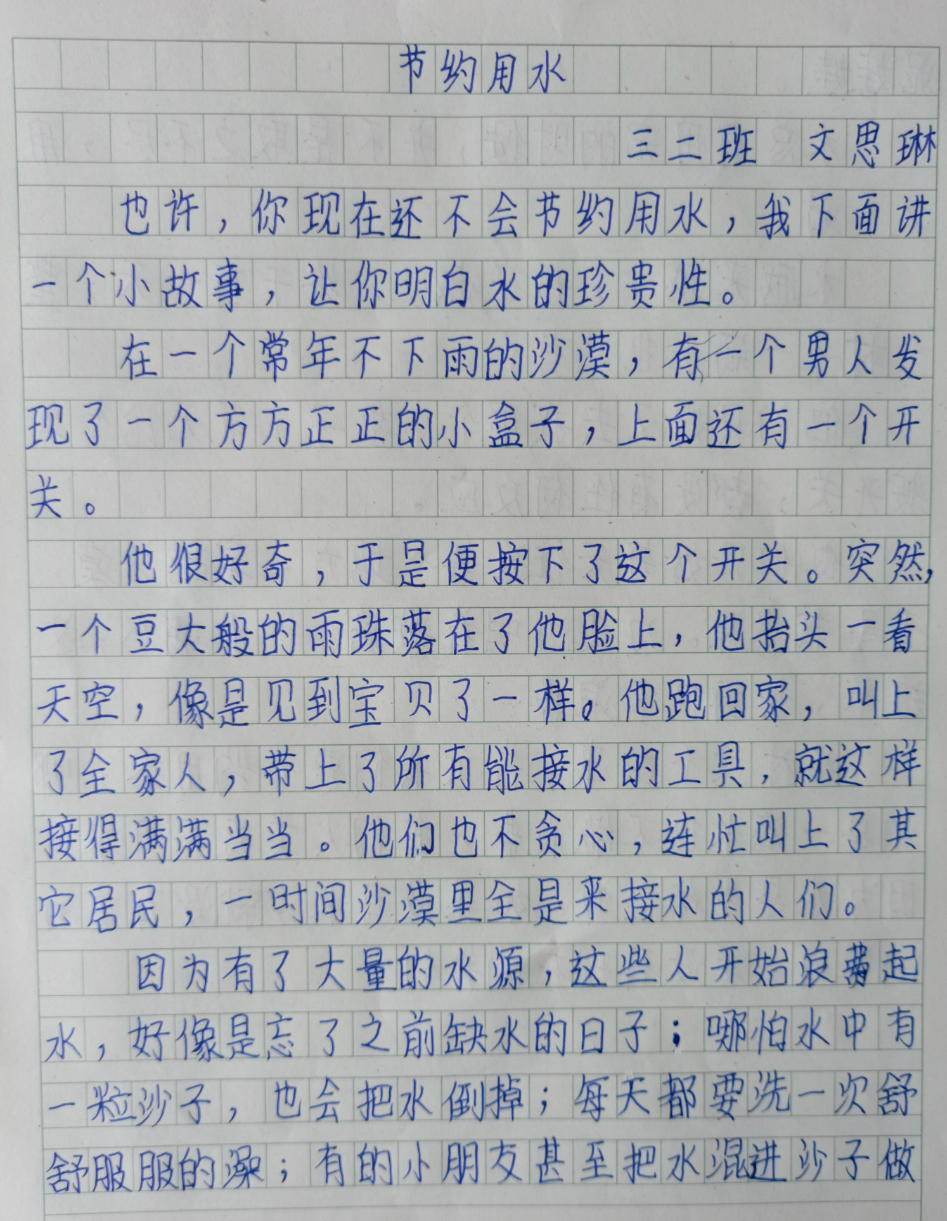 节约用水
三二班 文思琳
也许，你现在还不会节约用水，我下面讲
一个小故事，让你明白水的珍贵性。
在一个常年不下雨的沙漠，有一个男人发
现了一个方方正正的小盒子，上面还有一个开
关。
他很好奇，于是便按下了这个开关。突然，
一个豆大般的雨珠落在了他脸上，他抬头一看
天空，像是见到宝贝了一样。他跑回家，叫上
了全家人，带上了所有能接水的工具，就这样
接得满满当当。他们也不贪心，连忙叫上了其
它居民，一时间沙漠里全是来接水的人们。
因为有了大量的水源，这些人开始浪费起
水，好像是忘了之前缺水的日子；哪怕水中有
一粒沙子，也会把水倒掉；每天都要洗一次舒
舒服服的澡；有的小朋友甚至把水混进沙子做